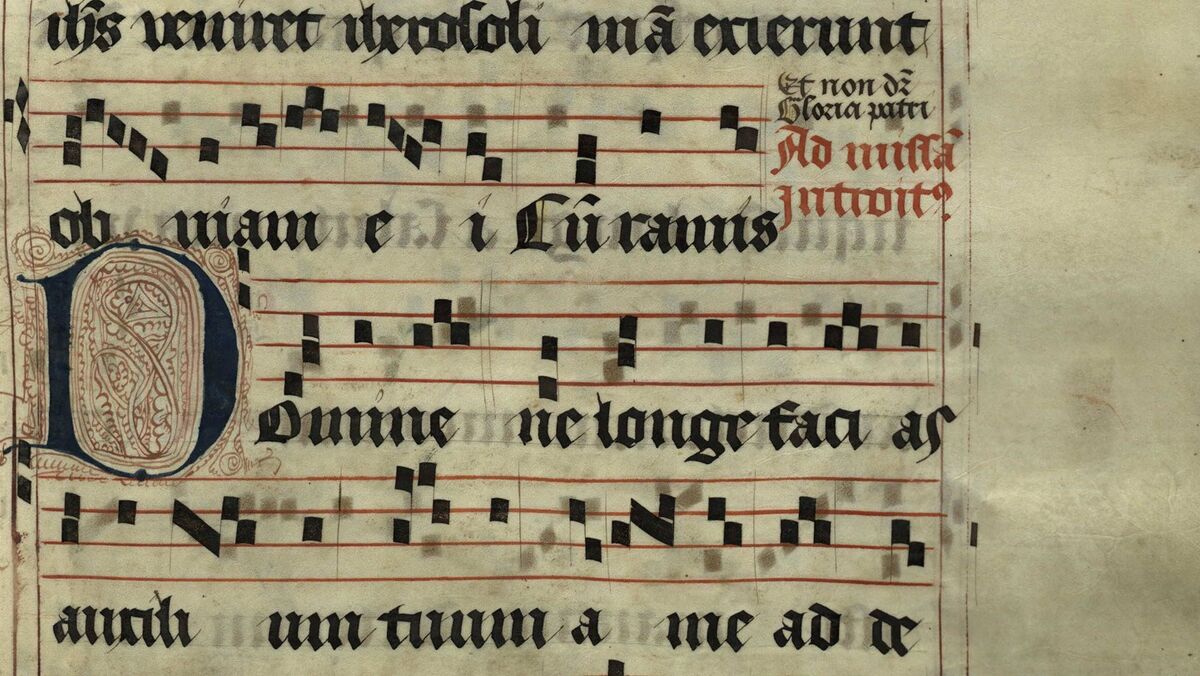 ih̄s veniret iherosoli mā exierunt
Et non dr̄
Gl̄oria patri
Ad missā
introitꝰ
ob viam e i Cū ramis
Domine ne longe faci as
auxili um tuum a me ad de